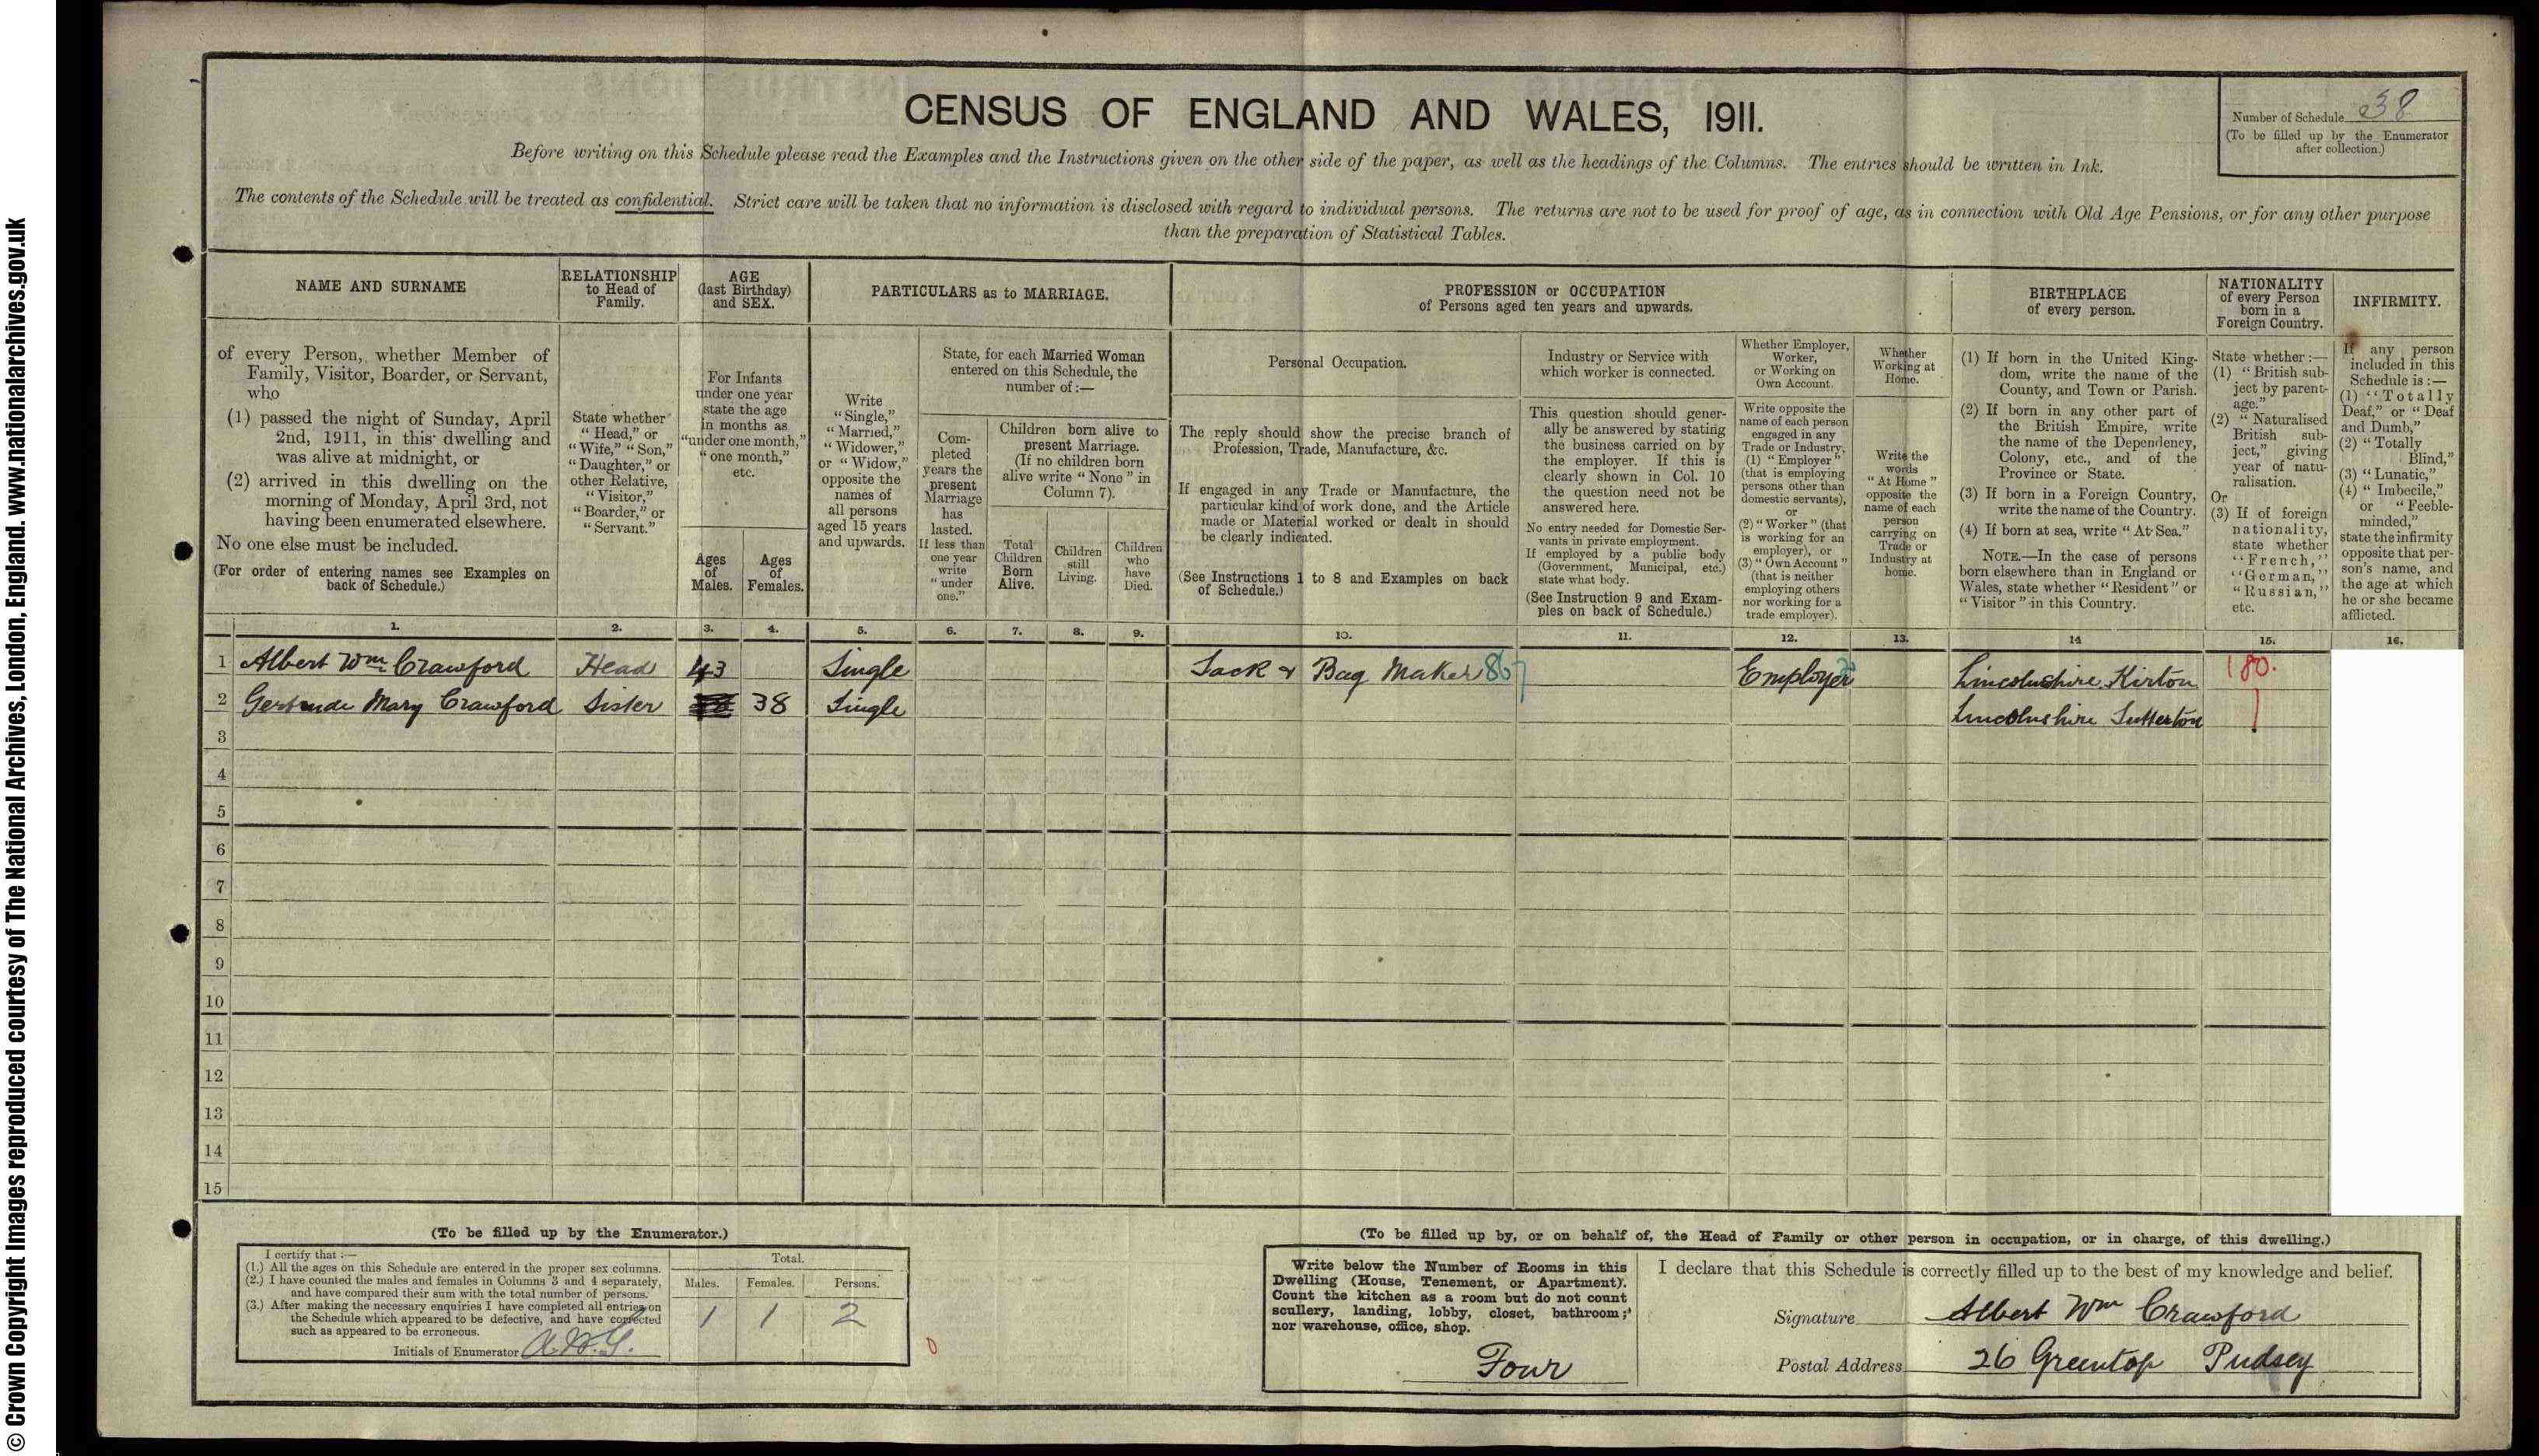 © Crown Copyright Images reproduced courtesy of The National Archives, London, England. www.nationalarchives.gov.uk
CENSUS OF ENGLAND AND WALES, 1911.
Number of Schedule 38
(To be filled up by the Enumerator
after collection.)
Before writing on this Schedule please read the Examples and the Instructions given on the other side of the paper, as well as the headings of the Columns. The entries should be written in Ink.
The contents of the Schedule will be treated as confidential. Strict care will be taken that no information is disclosed with regard to individual persons. The returns are not to be used for proof of age, as in connection with Old Age Pensions, or for any other purpose
than the preparation of Statistical Tables.
NAME AND SURNAME
of every Person, whether Member of
Family, Visitor, Boarder, or Servant,
who
(1) passed the night of Sunday, April
2nd, 1911, in this dwelling and
was alive at midnight, or
(2) arrived in this dwelling on the
morning of Monday, April 3rd, not
having been enumerated elsewhere.
No one else must be included.
(For order of entering names see Examples on
back of Schedule.)
RELATIONSHIP
to Head of
Family.
State whether
“Head,” or
“Wife,” “Son,”
“Daughter,” or
other Relative,
“Visitor,”
“Boarder,” or
“Servant.”
AGE
(last Birthday)
and SEX.
For Infants
under one year
state the age
in months as
“under one month,”
“one month,”
etc.
Ages
of
Males.
Ages
of
Females.
PARTICULARS as to MARRIAGE.
Write
“Single,”
“Married,”
“Widower,”
or “Widow,”
opposite the
names of
all persons
aged 15 years
and upwards.
State, for each Married Woman
entered on this Schedule, the
number of:—
Com-
pleted
years the
present
Marriage
has
lasted.
If less than
one year
write
“under
one.”
Children born alive to
present Marriage.
(If no children born
alive write “None” in
Column 7).
Total
Children
Born
Alive.
Children
still
Living.
Children
who
have
Died.
PROFESSION or OCCUPATION
of Persons aged ten years and upwards.
Personal Occupation.
The reply should show the precise branch of
Profession, Trade, Manufacture, &c.
If engaged in any Trade or Manufacture, the
particular kind of work done, and the Article
made or Material worked or dealt in should
be clearly indicated.
(See Instructions 1 to 8 and Examples on back
of Schedule.)
Industry or Service with
which worker is connected.
This question should gener-
ally be answered by stating
the business carried on by
the employer. If this is
clearly shown in Col. 10
the question need not be
answered here.
No entry needed for Domestic Ser-
vants in private employment.
If employed by a public body
(Government, Municipal, etc.)
state what body.
(See Instruction 9 and Exam-
ples on back of Schedule.)
Whether Employer,
Worker,
or Working on
Own Account.
Write opposite the
name of each person
engaged in any
Trade or Industry,
(1) “Employer”
(that is employing
persons other than
domestic servants),
or
(2) “Worker” (that
is working for an
employer), or
(3) “Own Account”
(that is neither
employing others
nor working for a
trade employer).
Whether
Working at
Home.
Write the
words
“At Home”
opposite the
name of each
person
carrying on
Trade or
Industry at
home.
BIRTHPLACE
of every person.
(1) If born in the United King-
dom, write the name of the
County, and Town or Parish.
(2) If born in any other part of
the British Empire, write
the name of the Dependency,
Colony, etc., and of the
Province or State.
(3) If born in a Foreign Country,
write the name of the Country.
(4) If born at sea, write “At Sea.”
NOTE.—In the case of persons
born elsewhere than in England or
Wales, state whether “Resident” or
“Visitor” in this Country.
NATIONALITY
of every Person
born in a
Foreign Country.
State whether:—
(1) “British sub-
ject by parent-
age.”
(2) “Naturalised
British sub-
ject,” giving
year of natu-
ralisation.
Or
(3) If of foreign
nationality,
state whether
“French,”
“German,”
“Russian,”
etc.
INFIRMITY.
If any person
included in this
Schedule is:—
(1) “Totally
Deaf,” or “Deaf
and Dumb,”
(2) “Totally
Blind,”
(3) “Lunatic,”
(4) “Imbecile,”
or “Feeble-
minded,”
state the infirmity
opposite that per-
son’s name, and
the age at which
he or she became
afflicted.
1. 2. 3. 4. 5. 6. 7. 8. 9. 10. 11. 12. 13. 14 15. 16.
1 Albert Wm Crawford Head 43 Single Sack & Bag Maker 867 Employer Lincolnshire Kirton 180.
2 Gertrude Mary Crawford Sister 38 Single Lincolnshire Sutterton
3
4
5
6
7
8
9
10
11
12
13
14
15
(To be filled up by the Enumerator.)
I certify that:—
(1.) All the ages on this Schedule are entered in the proper sex columns.
(2.) I have counted the males and females in Columns 3 and 4 separately,
and have compared their sum with the total number of persons.
(3.) After making the necessary enquiries I have completed all entries on
the Schedule which appeared to be defective, and have corrected
such as appeared to be erroneous.
Initials of Enumerator
Total.
Males. Females. Persons.
1 1 2
0
(To be filled up by, or on behalf of, the Head of Family or other person in occupation, or in charge, of this dwelling.)
Write below the Number of Rooms in this
Dwelling (House, Tenement, or Apartment).
Count the kitchen as a room but do not count
scullery, landing, lobby, closet, bathroom;
nor warehouse, office, shop.
Four
I declare that this Schedule is correctly filled up to the best of my knowledge and belief.
Signature Albert Wm Crawford
Postal Address 26 Greentop Pudsey